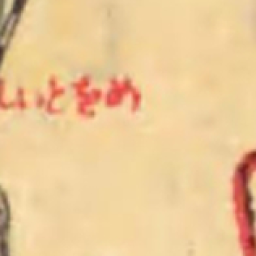 しいとをめ